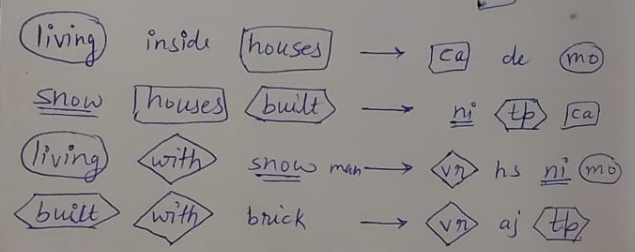 living inside houses → ca de mo
snow houses built → ni tp ca
living with snow man → vr hs ni mo
built with brick → vr aj tp